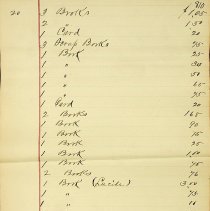 20 3 Books $1.05
2 " 1.50
1 Card 20
3 Scrap Books 75
1 Book 25
1 " 30
1 " 50
1 " 65
1 " 75
1 Card 20
2 Books 165
1 Book 90
1 Book 15
1 Book 25
1 Book 1,00
1 Book 75
2 Books 76
1 Book (Lucile) 3.00
1 " 75
1 " 10